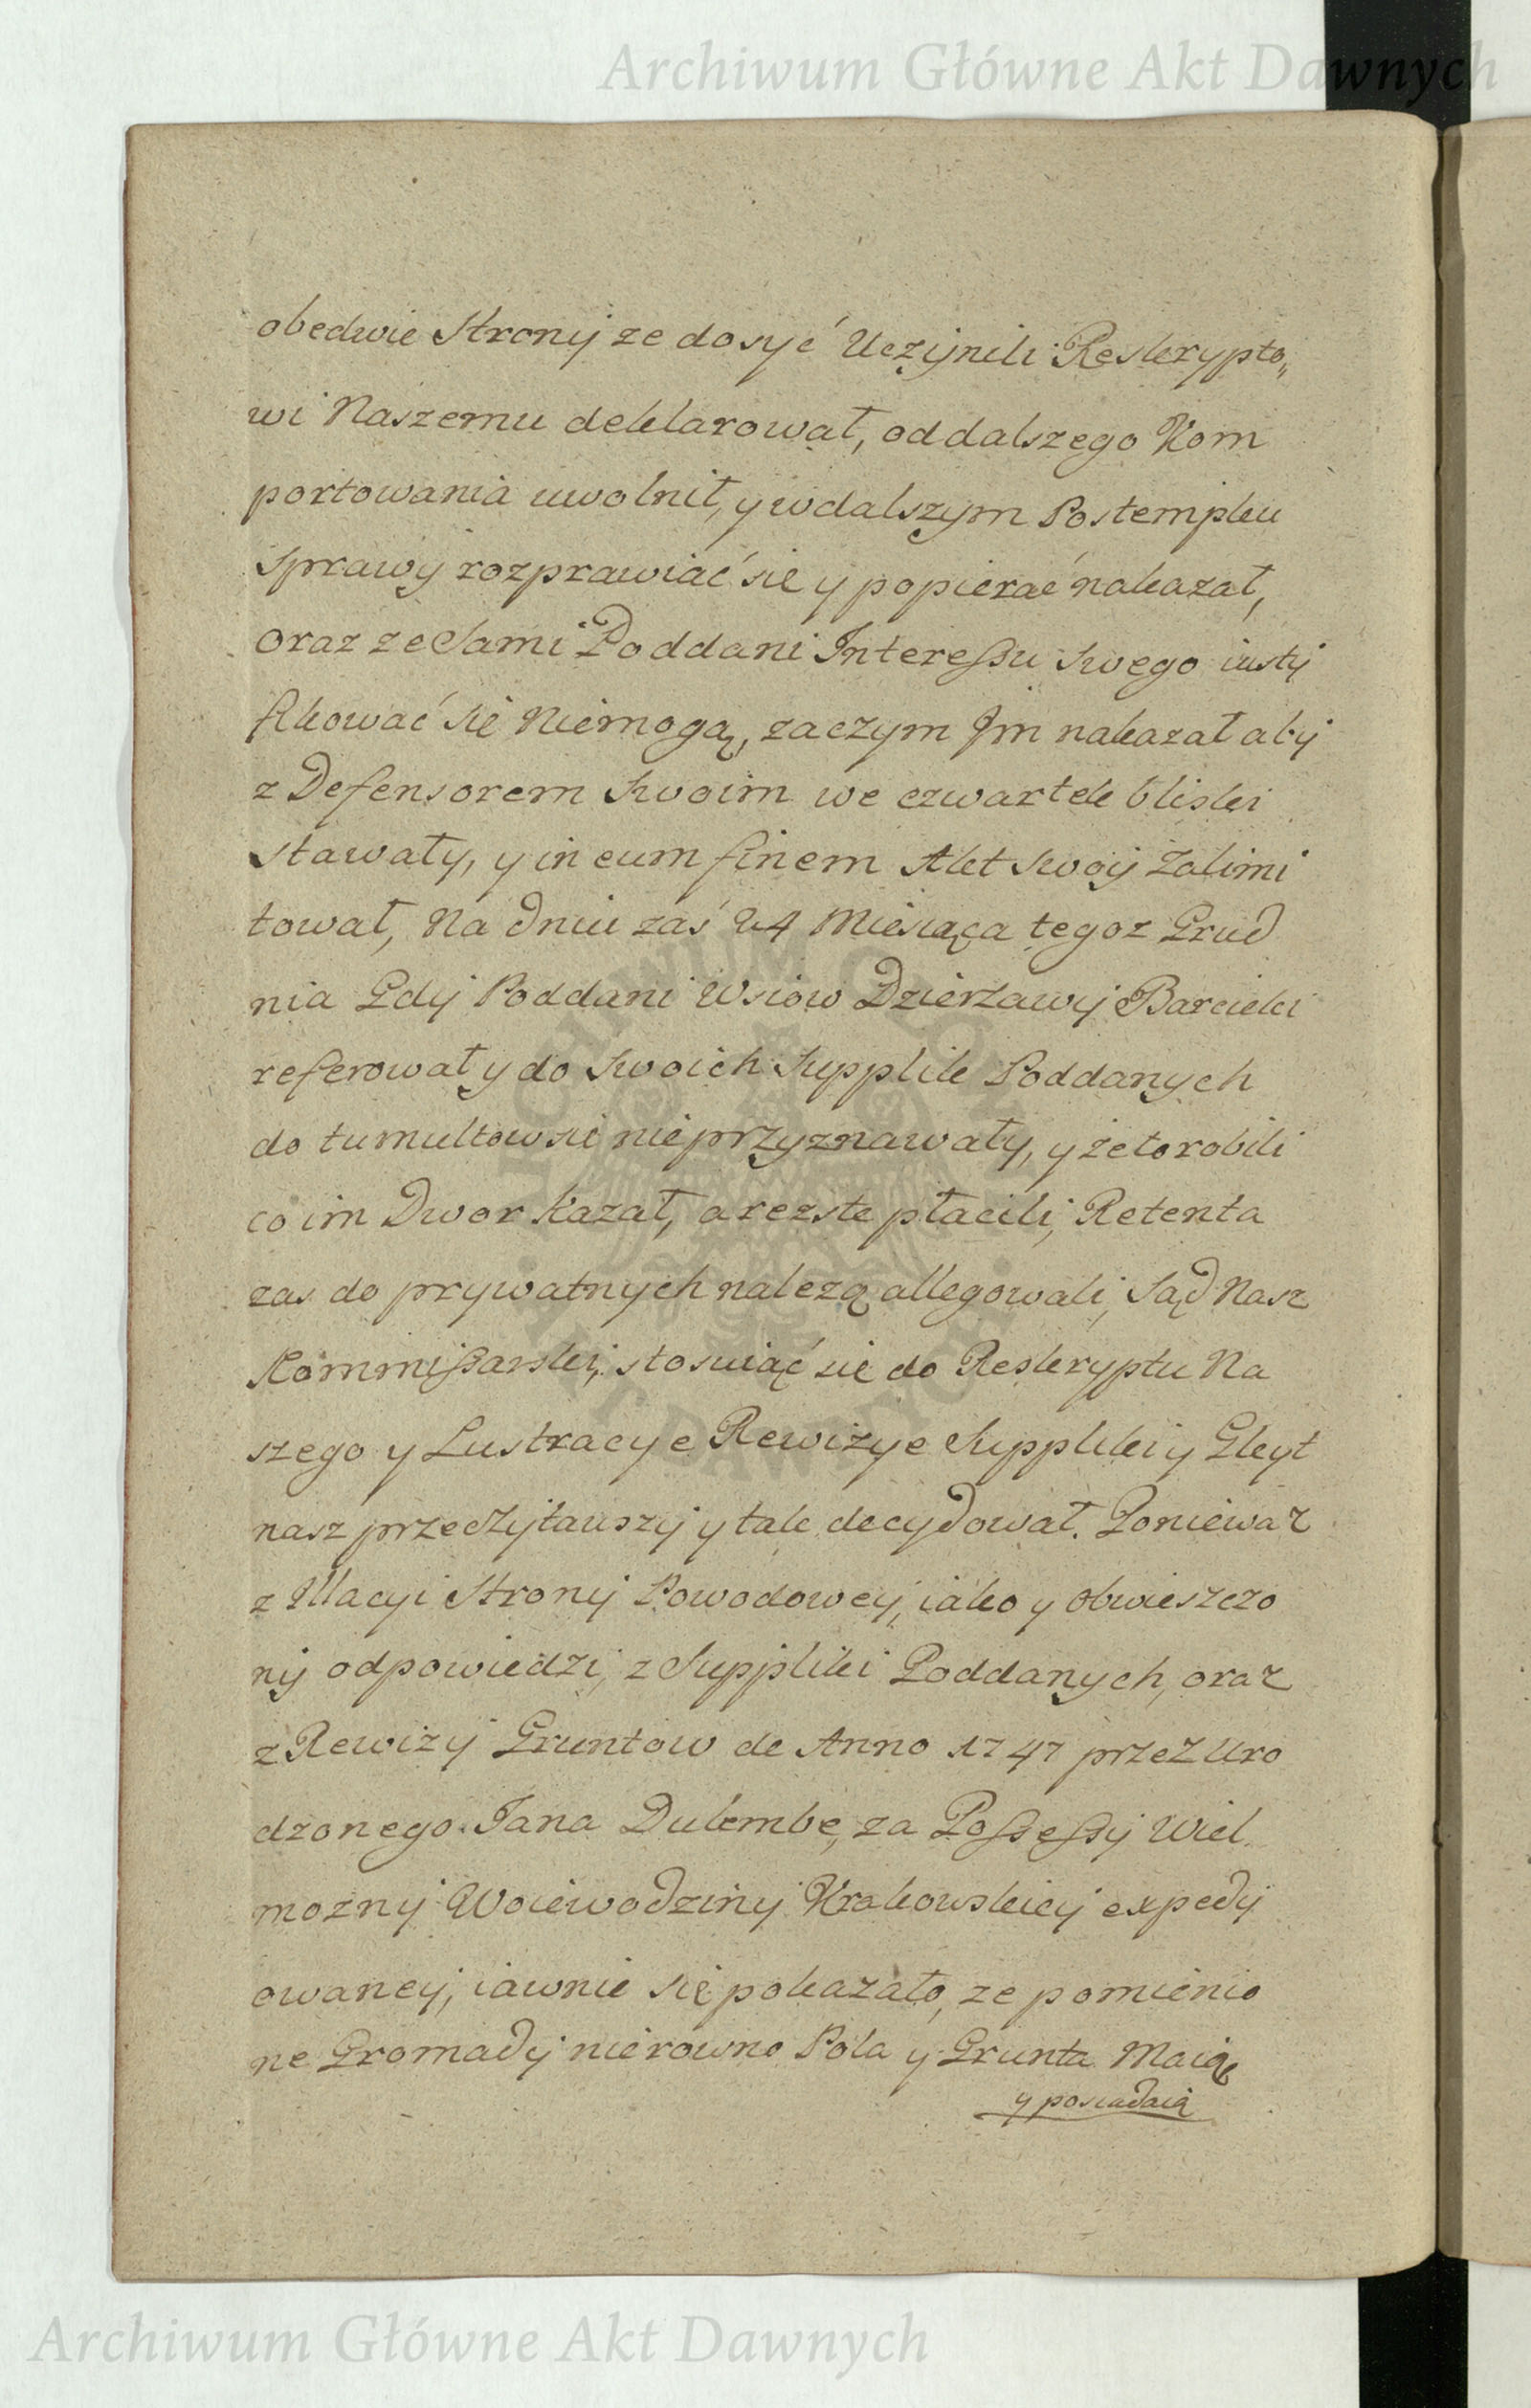 Archiwum Główne Akt Dawnych
obedwie Strony ze dosyć Uczynili Reskrypto„
wi Naszemu deklarował, od dalszego Kom
portowania uwolnił, y w dalszym Postempku
Sprawy rozprawiać się y popierać nakazał,
oraz ze Sami Poddani Interessu swego iusty
fikować się Niemogą, zaczym Im nakazał aby
z Defensorem Swoim we czwartek bliski
Stawały, y in eum finem Akt Swoy Zalimi
tował, Na Dniu zaś 24 Miesiąca tegoz Grud
nia Gdy Poddani Wsiow Dzierżawy Barcicki
referowały do Swoich Supplik Poddanych
do tumultow się nieprzyznawały, y że to robili
co im Dwor Kazał, a rezste płacili, Retenta
zas do prywatnych nalezą allegowali, Sąd Nasz
Kommissarski, stosuiąć się do Reskryptu Na
szego y Lustracye Rewizye Suppliki y Gleyt
nasz przeczytawszy y tak decydował. Poniewaz
z Illacyi Strony Powodowey, iako y Obwieszczo
ny odpowiedzi, z Suppliki Poddanych, oraz
z Rewizy Gruntow de Anno 1747 przez Uro
dzonego Jana Dulembe, za Possessyi Wiel
mozny Woiewodziny Krakowskiey expedy
owaney, iawnie się pokazało, ze pomienio
ne Gromady nierowno Pola y Grunta Maią
y posiadaią
Archiwum Główne Akt Dawnych